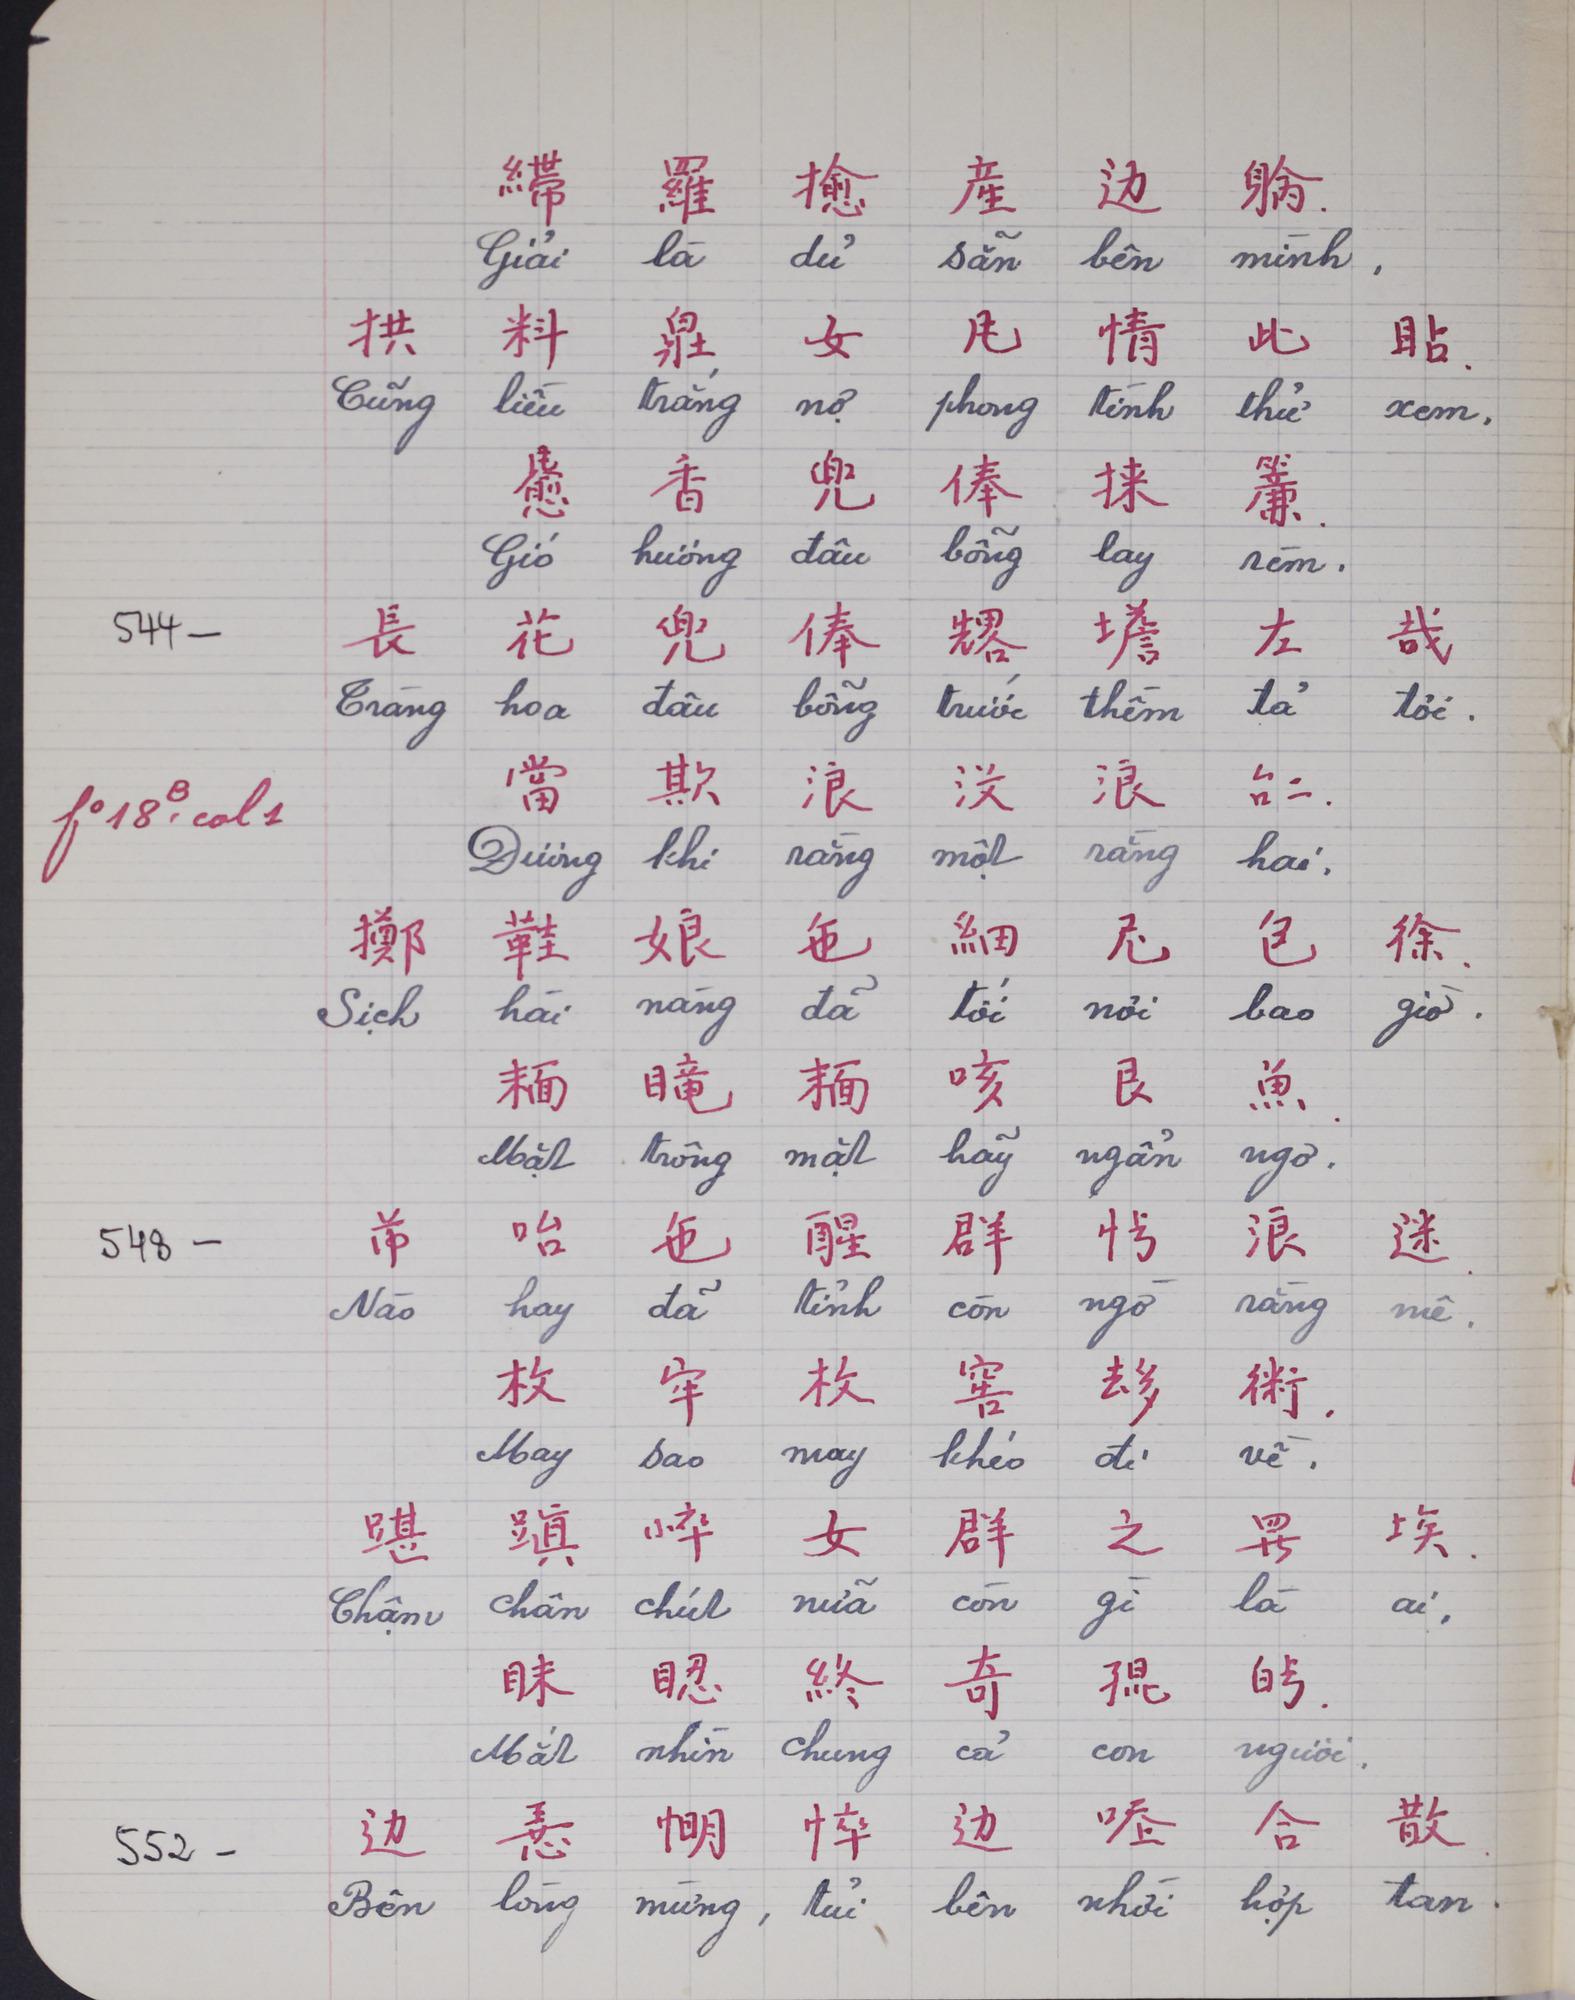 羅 產 边
Giải là dử sẵn bên mình,
拱 料 女 情 此 貼.
Cũng liều trăng nợ phong tình thử xem.
香 兜 俸 捸 簾.
Gió hương đâu bỗng lay rèm.
544— 長 花 兜 俸 左 哉
Tràng hoa đâu bỗng trước thềm tả tơi.
當 欺 浪 沒 浪 𠄩.
Đương khi rằng một rằng hai,
fº 18ᴮ. col 1
擲 鞋 娘 㐌 細 尼 包 徐.
Sịch hài nàng đã tới nơi bao giờ.
𩈘 咳 艮 魚.
Mặt trông mặt hãy ngẩn ngơ.
548 — 咍 㐌 醒 群 浪 迷.
Nào hay đã tỉnh còn ngờ rằng mê.
枚 牢 枚 窖 術.
May sao may khéo đi về.
踸 蹎 女 群 之 埃.
Chậm chân chút nữa còn gì là ai.
眜 終 奇
Mắt nhìn chung cả con người.
552 — 边 悴 边 合 散.
Bên lòng mừng, tủi bên nhời hợp tan.